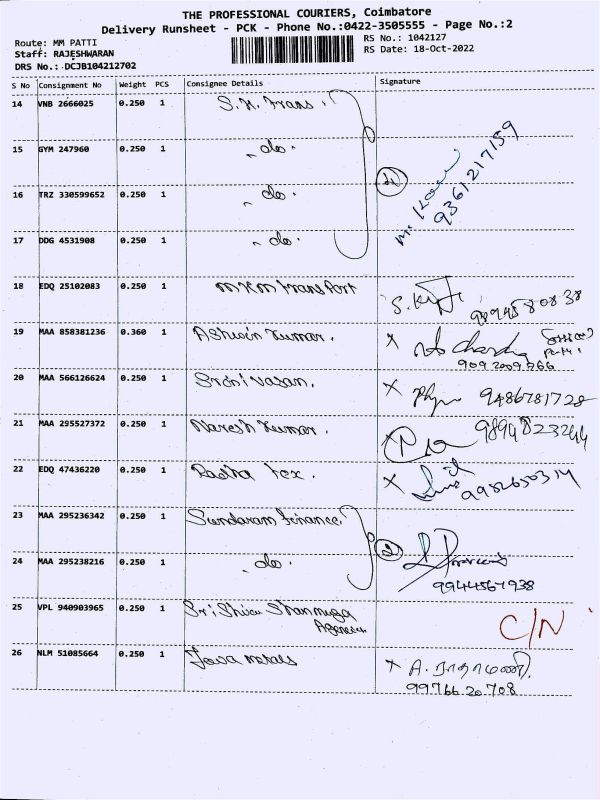 THE PROFESSIONAL COURIERS, Coimbatore
Delivery Runsheet - PCK - Phone No.:0422-3505555 - Page No.:2
Route: MM PATTI
RS No.: 1042127
Staff: RAJESHWARAN
RS Date: 18-Oct-2022
DRS No.: DCJB104212702
S No Consignment No Weight PCS Consignee Details Signature
14 VNB 2666025 0.250 1 S.K. Trans.
15 GYM 247960 0.250 1 - do -
16 TRZ 330599652 0.250 1 - do - 4 9361217159
17 DDG 4531908 0.250 1 - do -
18 EDQ 25102083 0.250 1 MKM Transport
19 MAA 858381236 0.360 1 Ashwin Kumar. X
9092009766
20 MAA 566126624 0.250 1 Srinivasan. X 9486781728
21 MAA 295527372 0.250 1 Naresh Kumar. 9894823244
22 EDQ 47436220 0.250 1 Tex. X
23 MAA 295236342 0.250 1 Sundaram Finance. 2
24 MAA 295238216 0.250 1 - do -
9944567938
25 VPL 940903965 0.250 1 Sri Shiva Shanmuga C/N
Agencies
26 NLM 51085664 0.250 1 Metals X A. ராதாமணி
99766 20 708